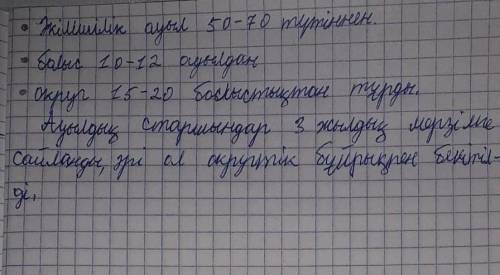 • Әкімшілік ауыл 50-70 түтіннен.
• болыс 10-12 ауылдан
• округ 15-20 болыстықтан тұрды.
Ауылдық старшындар 3 жылдық мерзімге
сайланды, әрі ол округтік бұйрықпен бекітіл-
ді.